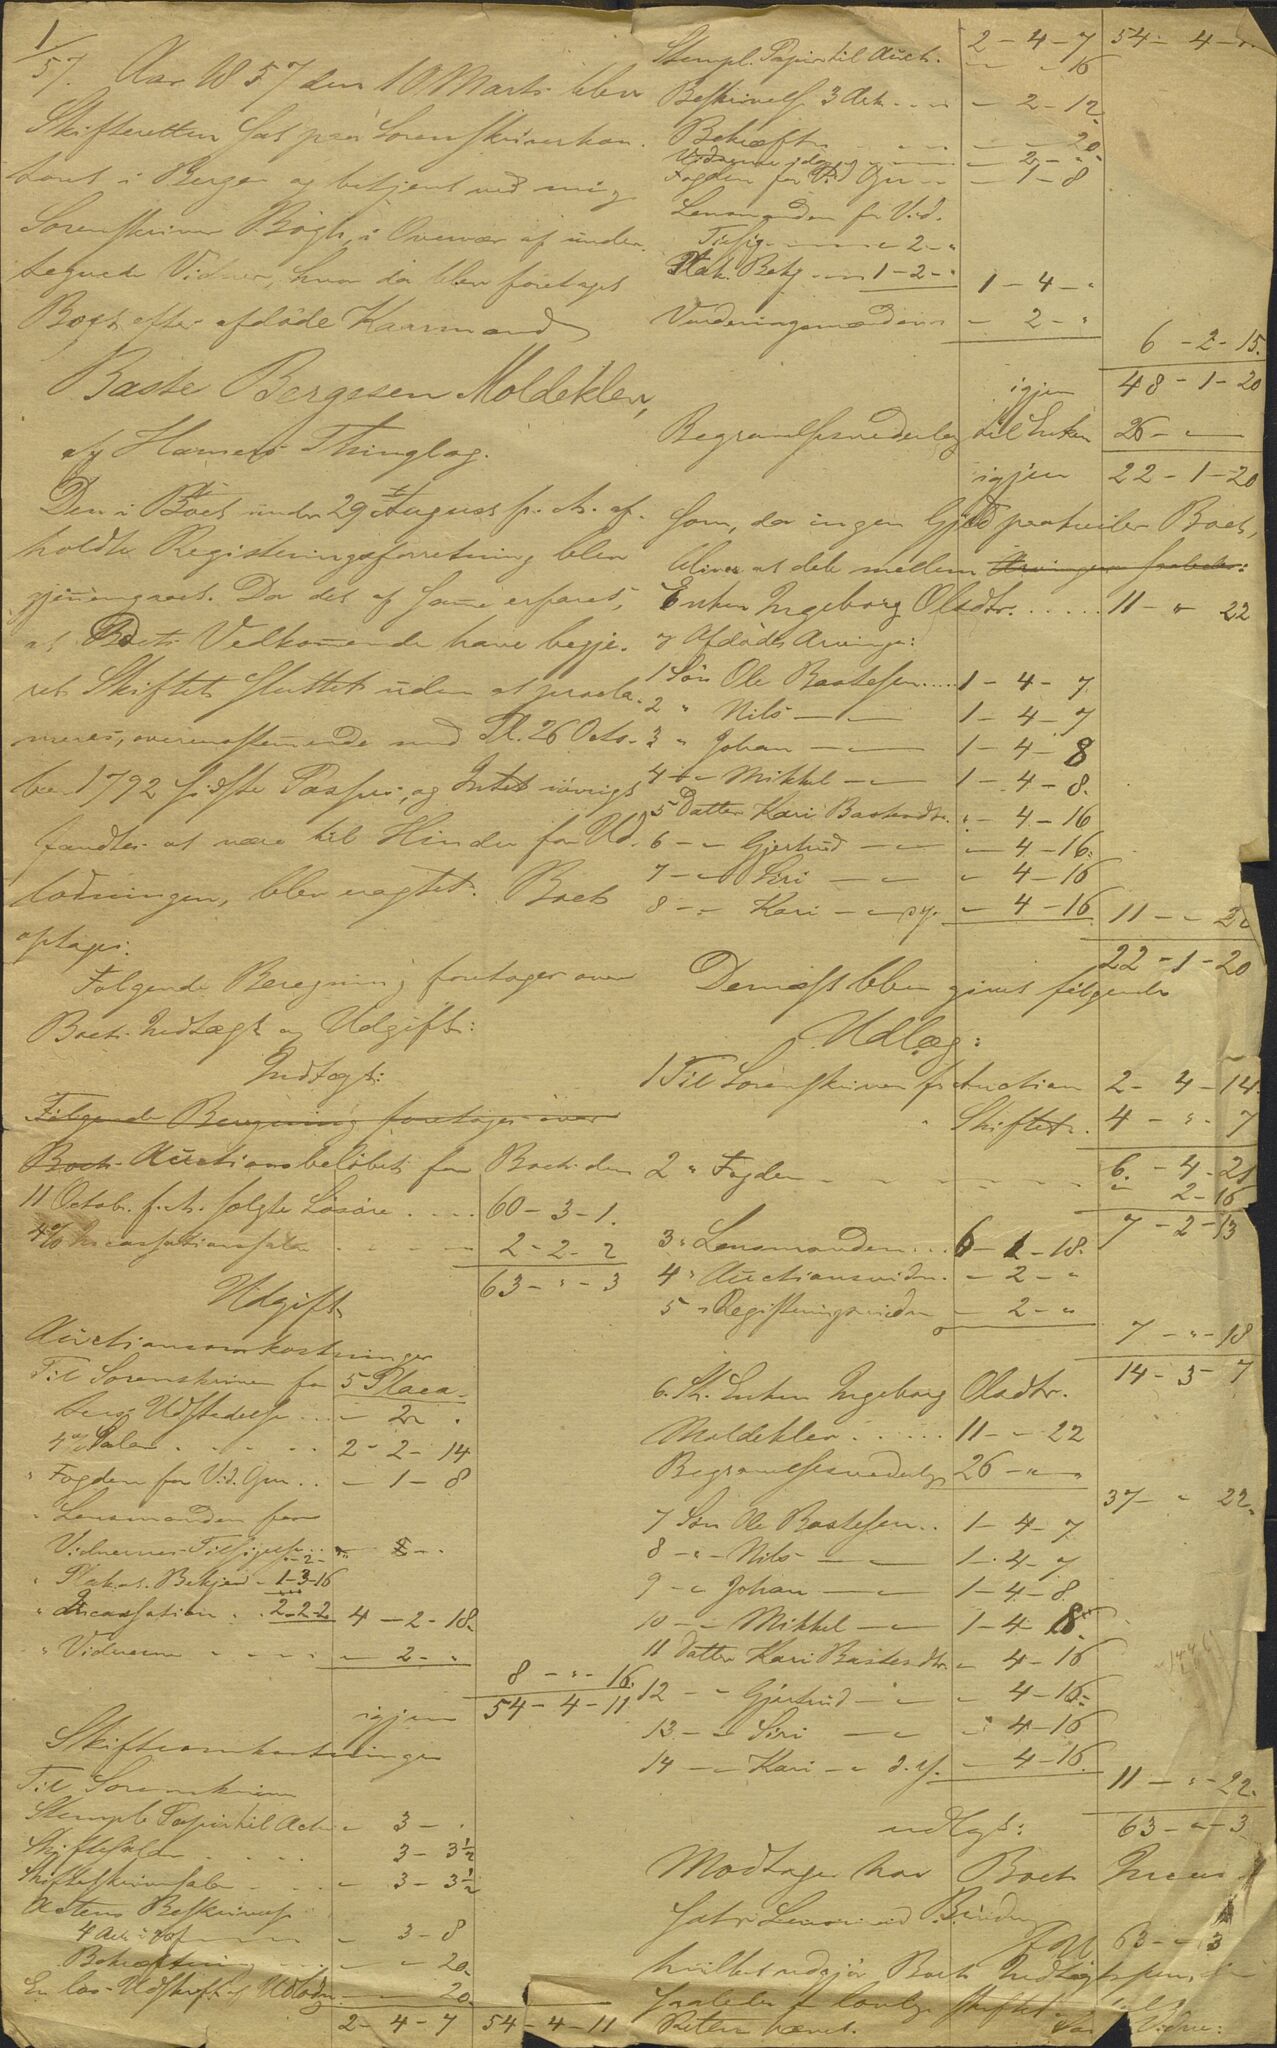 1/57. Aar 1857 den 10 Marts blev
Skifteretten sat paa Sorenskriverkon-
toret i Bergen og betjent ved mig
Sorenskriver Bøgh, i Overvær af under-
tegnede Vidner, hvor da blev foretaget
Boet efter afdøde Kaarmand
Baste Børgesen Moldeklev,
af Hammers Thinglag.
Den i Boet under 29 August f. A. af-
holdte Registreringsforretning blev
gjennemgaaet. Da det af samme erfares,
at Boets Vedkommende have begje-
ret Skiftet sluttet uden at procla-
meres, overensstemmende med Pl. 26 Octo-
ber 1792 sidste Passus, og Intet iøvrigt
fandtes at være til Hinder for Ud-
lodningen, blev eragtet: Boet
optages.
Følgende Beregning foretages over
Boets Indtægt og Udgift:
Indtægt:
Følgende Beregning foretages over
Boets Auctionsbeløbet for Boets den
11 Octob. f. A. solgte Løsøre .... 60 - 3 - 1.
4% Incassationssalær .... 2 - 2 - 2
63 - " - 3
Udgift
Auctionsomkostninger
Til Sorenskriveren for 5 Placa-
ters Udstedelse ... - 2 .
4% Salær .... 2 - 2 - 14
" Fogden for Vid. Opn ... - 1 - 8
" Lensmanden for
Vidnernes Tilsigelse ... " - 2 -
" Plakat. Bekjend - 1 - 3 - 16
" Incassation .. 2 - 2 - 2 4 - 2 - 18.
" Vidnerne .... - 2 - "
8 - " - 16.
igjen 54 - 4 - 11
Skifteomkostninger
Til Sorenskriveren
Stemplt Papir til Acten - 3 - .
Skiftesalær .... 3 - 3½
Skifteskriversalær .... - 3 - 3½
Actens Beskrivelse
4 Ark - 3 - 8
Bekræftning .... - " 20.
En løs Udskrift af Udlodn. - - 20.
2 - 4 - 7 54 - 4 - 11
2 - 4 - 7 54 - 4 -
Stempl. Papir til Auct. - - 16
Beskrivelse 3 Ark .... - 2 - 12
Bekræftn. .... - - 20.
Vidnerne .... - 2 - "
Fogden for Vid Opn .. - 1 - 8
Lensmanden for Vid.
Tilsig. .... - 2 - "
Plak. Bekj. .... 1 - 2 - " 1 - 4 - "
Vurderingsmændene - 2 - "
6 - 2 - 15.
igjen 48 - 1 - 20
Begravelsesvederlag til Enken 26 - " -
igjen 22 - 1 - 20
som, da ingen Gjæld paahviler Boet,
bliver at dele mellem Arvingerne saaledes:
Enken Ingeborg Olsdtr. ..... 11 - " 22
og Afdødes Arvinger:
1 Søn Ole Bastesen .... 1 - 4 - 7.
2 " Nils - - 1 - 4 - 7
3 " Johan - - 1 - 4 - 8
4 - " Mikkel - " 1 - 4 - 8.
5 Datter Kari Bastesdtr. " - 4 - 16
6 - " Gjertrud - " " - 4 - 16.
7 - " Siri - " " 4 - 16
8 - " Kari - " d.y. - 4 - 16 11 - " 20
22 - 1 - 20
Dernæst blev givet følgende
Udlæg:
1 Til Sorenskriveren for Auction 2 - 4 - 14.
" Skiftet. 4 - " - 7
6. - 4 - 21
2 " Fogden .... " 2 - 16
7 - 2 - 13
3 " Lensmanden ... 6 - 1 - 18.
4 " Auctionsvidn. - 2 - "
5 " Registreringsvidn - 2 - "
7 - " - 18
14 - 3 - 7
6. St. Enken Ingeborg Olsdtr.
Moldeklev ..... 11 - " 22
Begravelsesvederlag 26 - " -
37 - " 22.
7 Søn Ole Bastesen .. 1 - 4 - 7
8 - " - Nils - - 1 - 4 - 7
9 - " Johan - " 1 - 4 - 8.
10 - " Mikkel - " 1 - 4 - 8.
11 Datter Kari Bastesdtr. - 4 - 16
12 - " Gjertrud - " " 4 - 16.
13 - " Siri - " " 4 - 16
14 - " Kari - " d.y. - 4 - 16.
11 - " - 22.
udlagt: 63 - " - 3
Modtager har Boets Incas-
sator Lensmand
63 - " 3
hvilket udgjør Boets Indtægtssum,
saaledes er lovlig skiftet
Retten hævet. Vidne: